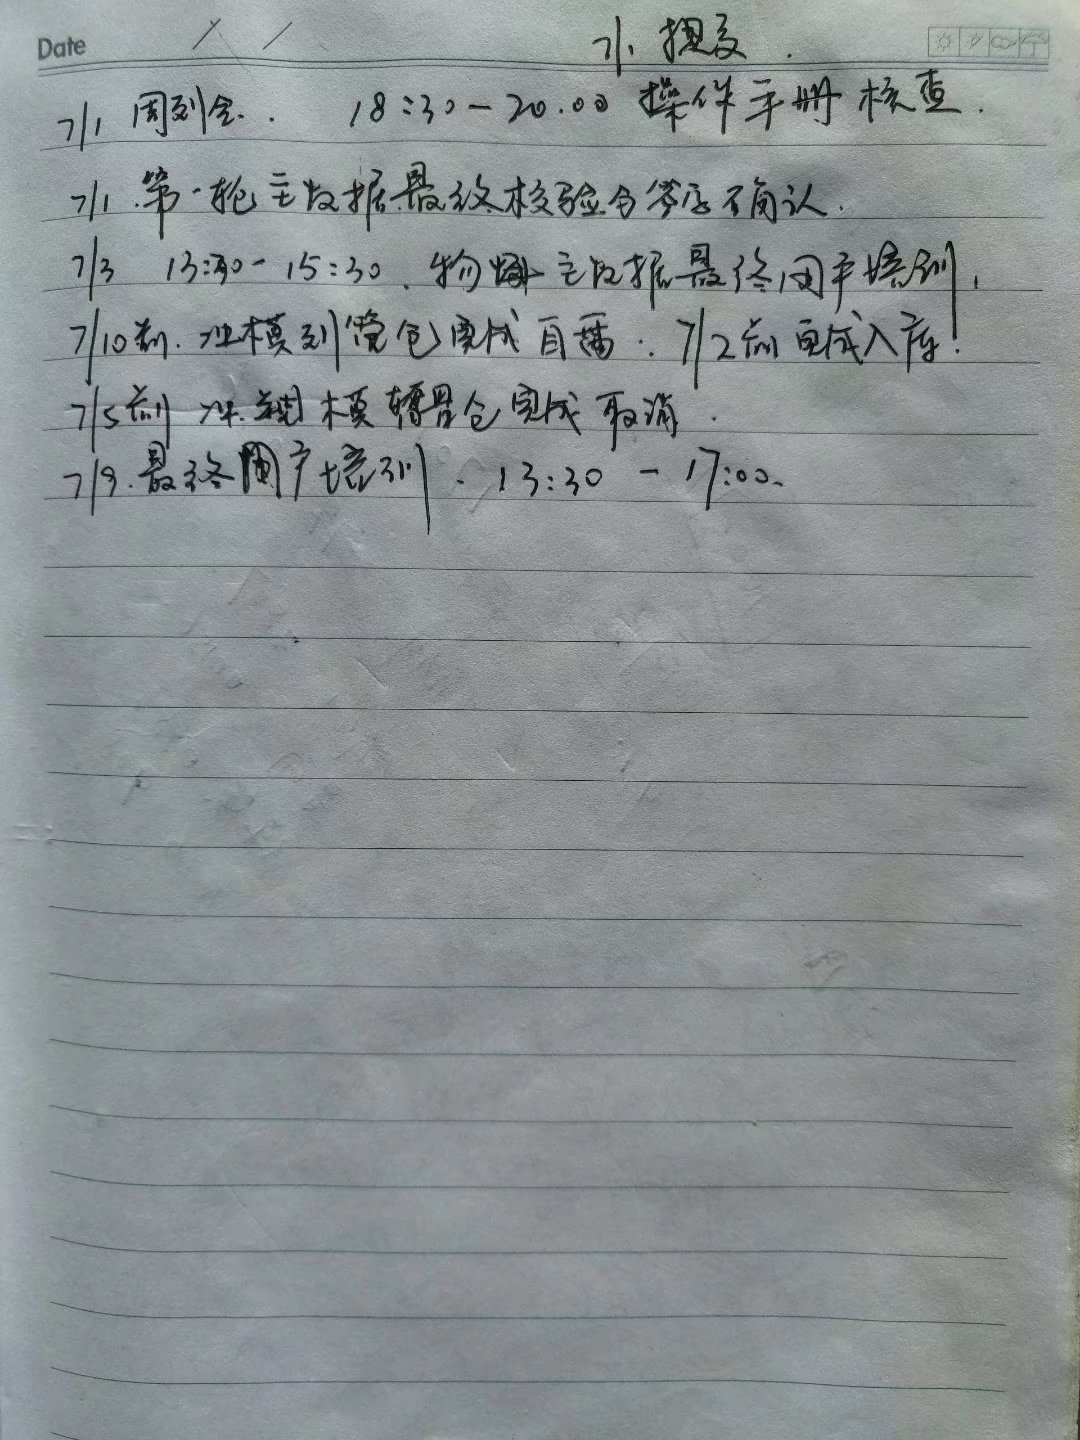 Date / /
7/1 提交.
7/1 周例会. 18:30-20:00 操作手册核查.
7/1 第一轮主数据最终校验会签后不确认.
7/3 13:30-15:30. 物 主数据最终用户培训.
7/10前. 模 仓完成 . 7/2前完成入库.
7/5前 模 仓完成取消.
7/9. 最终用户培训. 13:30-17:00.